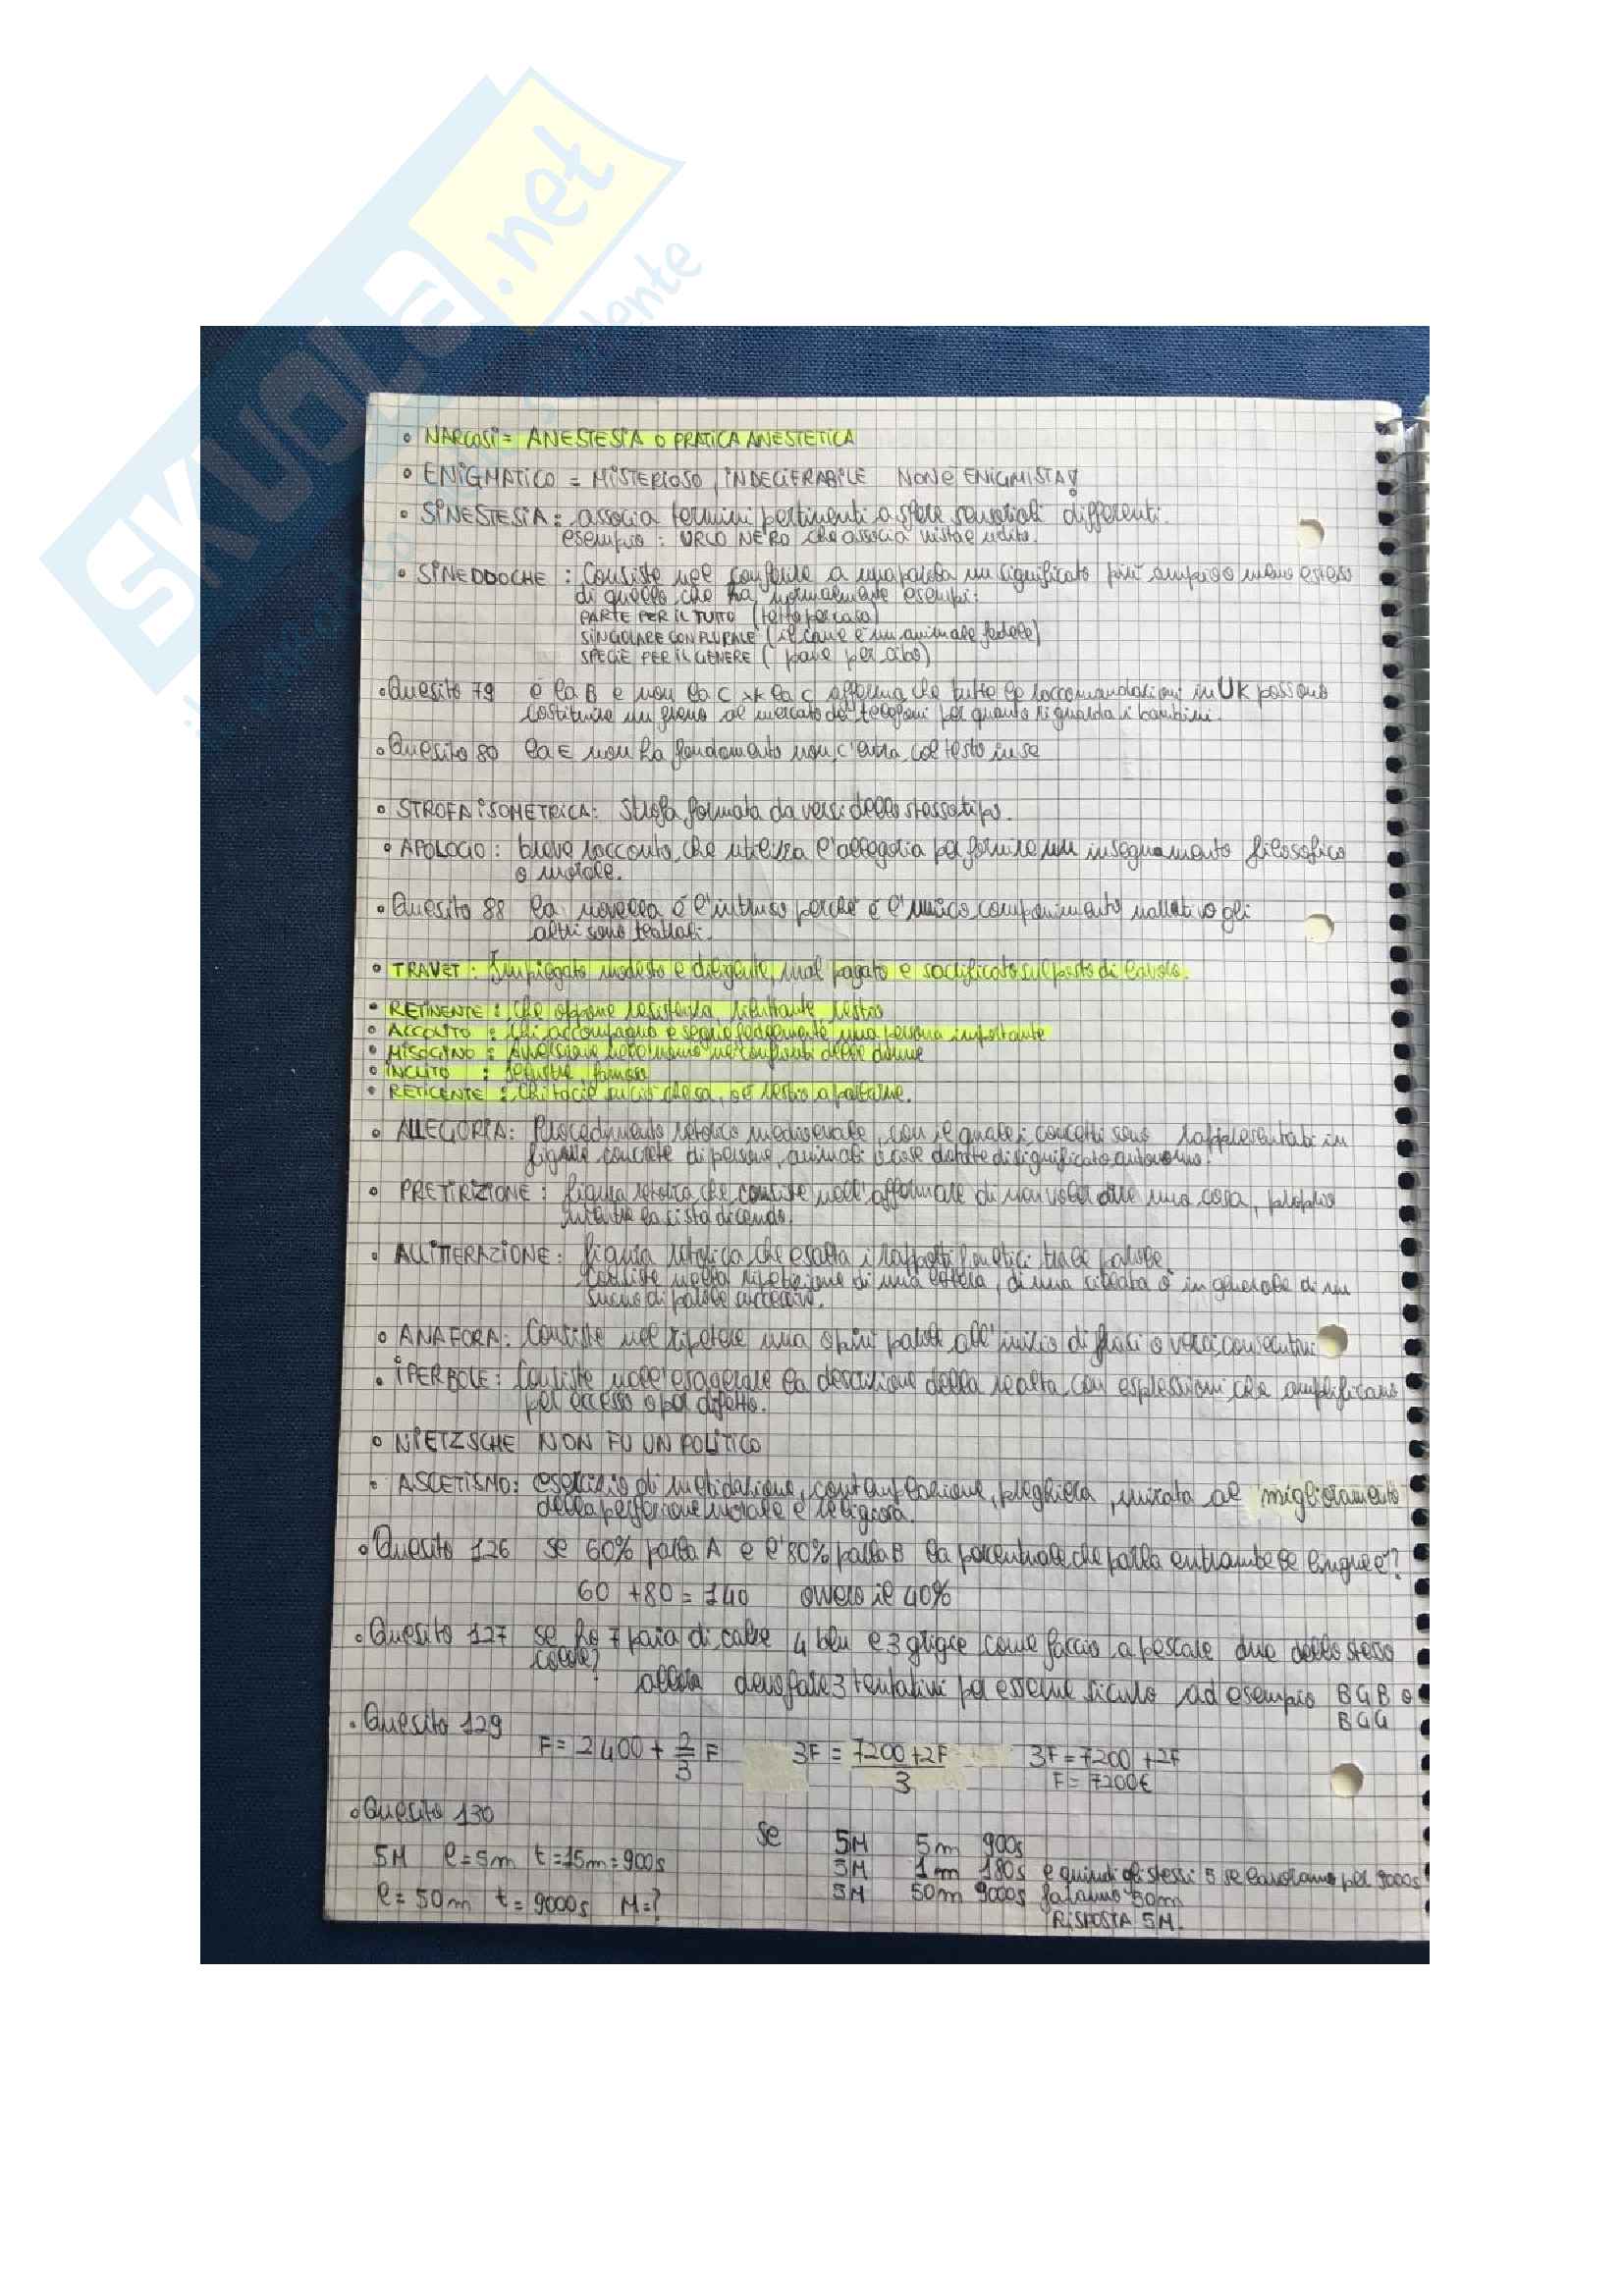 SKUOLA.net
• NARCOSI = ANESTESIA O PRATICA ANESTETICA
• ENIGMATICO = MISTERIOSO, INDECIFRABILE NON È ENIGMISTA!
• SINESTESIA: associa termini pertinenti a sfere sensoriali differenti.
esempio: URLO NERO che associa vista e udito.
• SINEDDOCHE: Consiste nel conferire a una parola un significato più ampio o meno esteso
di quello che ha normalmente esempi:
PARTE PER IL TUTTO (tetto per casa)
SINGOLARE CON PLURALE (il cane è un animale fedele)
SPECIE PER IL GENERE (pane per cibo)
• Quesito 79 è la B e non la C xk la C afferma che tutte le raccomandazioni in UK possono
costituire un freno al mercato dei telefoni per quanto riguarda i bambini.
• Quesito 80 la E non ha fondamento non c'entra col testo in se
• STROFA ISOMETRICA: strofa formata da versi dello stesso tipo.
• APOLOGO: breve racconto, che utilizza l'allegoria per fornire un insegnamento filosofico
o morale.
• Quesito 88 la novella è l'intruso perché è l'unico componimento narrativo gli
altri sono teatrali.
• TRAVET: Impiegato modesto e diligente, mal pagato e sacrificato sul posto di lavoro.
• RETINENTE: che oppone resistenza, riluttante restio
• ACCOLITO: chi accompagna e segue fedelmente una persona importante
• MISOGINO: Avversione nei confronti delle donne
• INCLITO: illustre famoso
• RETICENTE: chi tace su ciò che sa, restio a parlarne.
• ALLEGORIA: Procedimento retorico medioevale, con il quale i concetti sono rappresentati in
figure concrete di persone, animali o cose dotate di significato autonomo.
• PRETIRIZIONE: figura retorica che consiste nell'affermare di non voler dire una cosa, proprio
mentre la si sta dicendo.
• ALLITTERAZIONE: figura retorica che esalta i rapporti fonetici tra le parole
Consiste nella ripetizione di una lettera, di una sillaba o in generale di un
suono di parole successive.
• ANAFORA: Consiste nel ripetere una o più parole all'inizio di frasi o versi consecutivi
• IPERBOLE: Consiste nell'esagerare la descrizione della realtà con espressioni che amplificano
per eccesso o per difetto.
• NIETZSCHE NON FU UN POLITICO
• ASCETISMO: esercizio di meditazione, contemplazione, preghiera, mirata al miglioramento
della perfezione morale e religiosa.
• Quesito 126 se 60% parla A e l'80% parla B la percentuale che parla entrambe le lingue è?
60 + 80 = 140 ovvero il 40%
• Quesito 127 se ho 7 paia di calze 4 blu e 3 grigie come faccio a pescare due dello stesso
colore?
allora devo fare 3 tentativi per esserne sicuro ad esempio BGB o
BGG
• Quesito 129
F = 2400 + 2/3 F 3F = 7200+2F/3 3F = 7200 + 2F
F = 7200€
• Quesito 130
se 5M 5m 900s
5M l = 5m t = 15m = 900s 5M 1m 180s e quindi gli stessi 5 se lavorano per 9000s
l = 50m t = 9000s M = ? 5M 50m 9000s faranno 50m
RISPOSTA 5M.